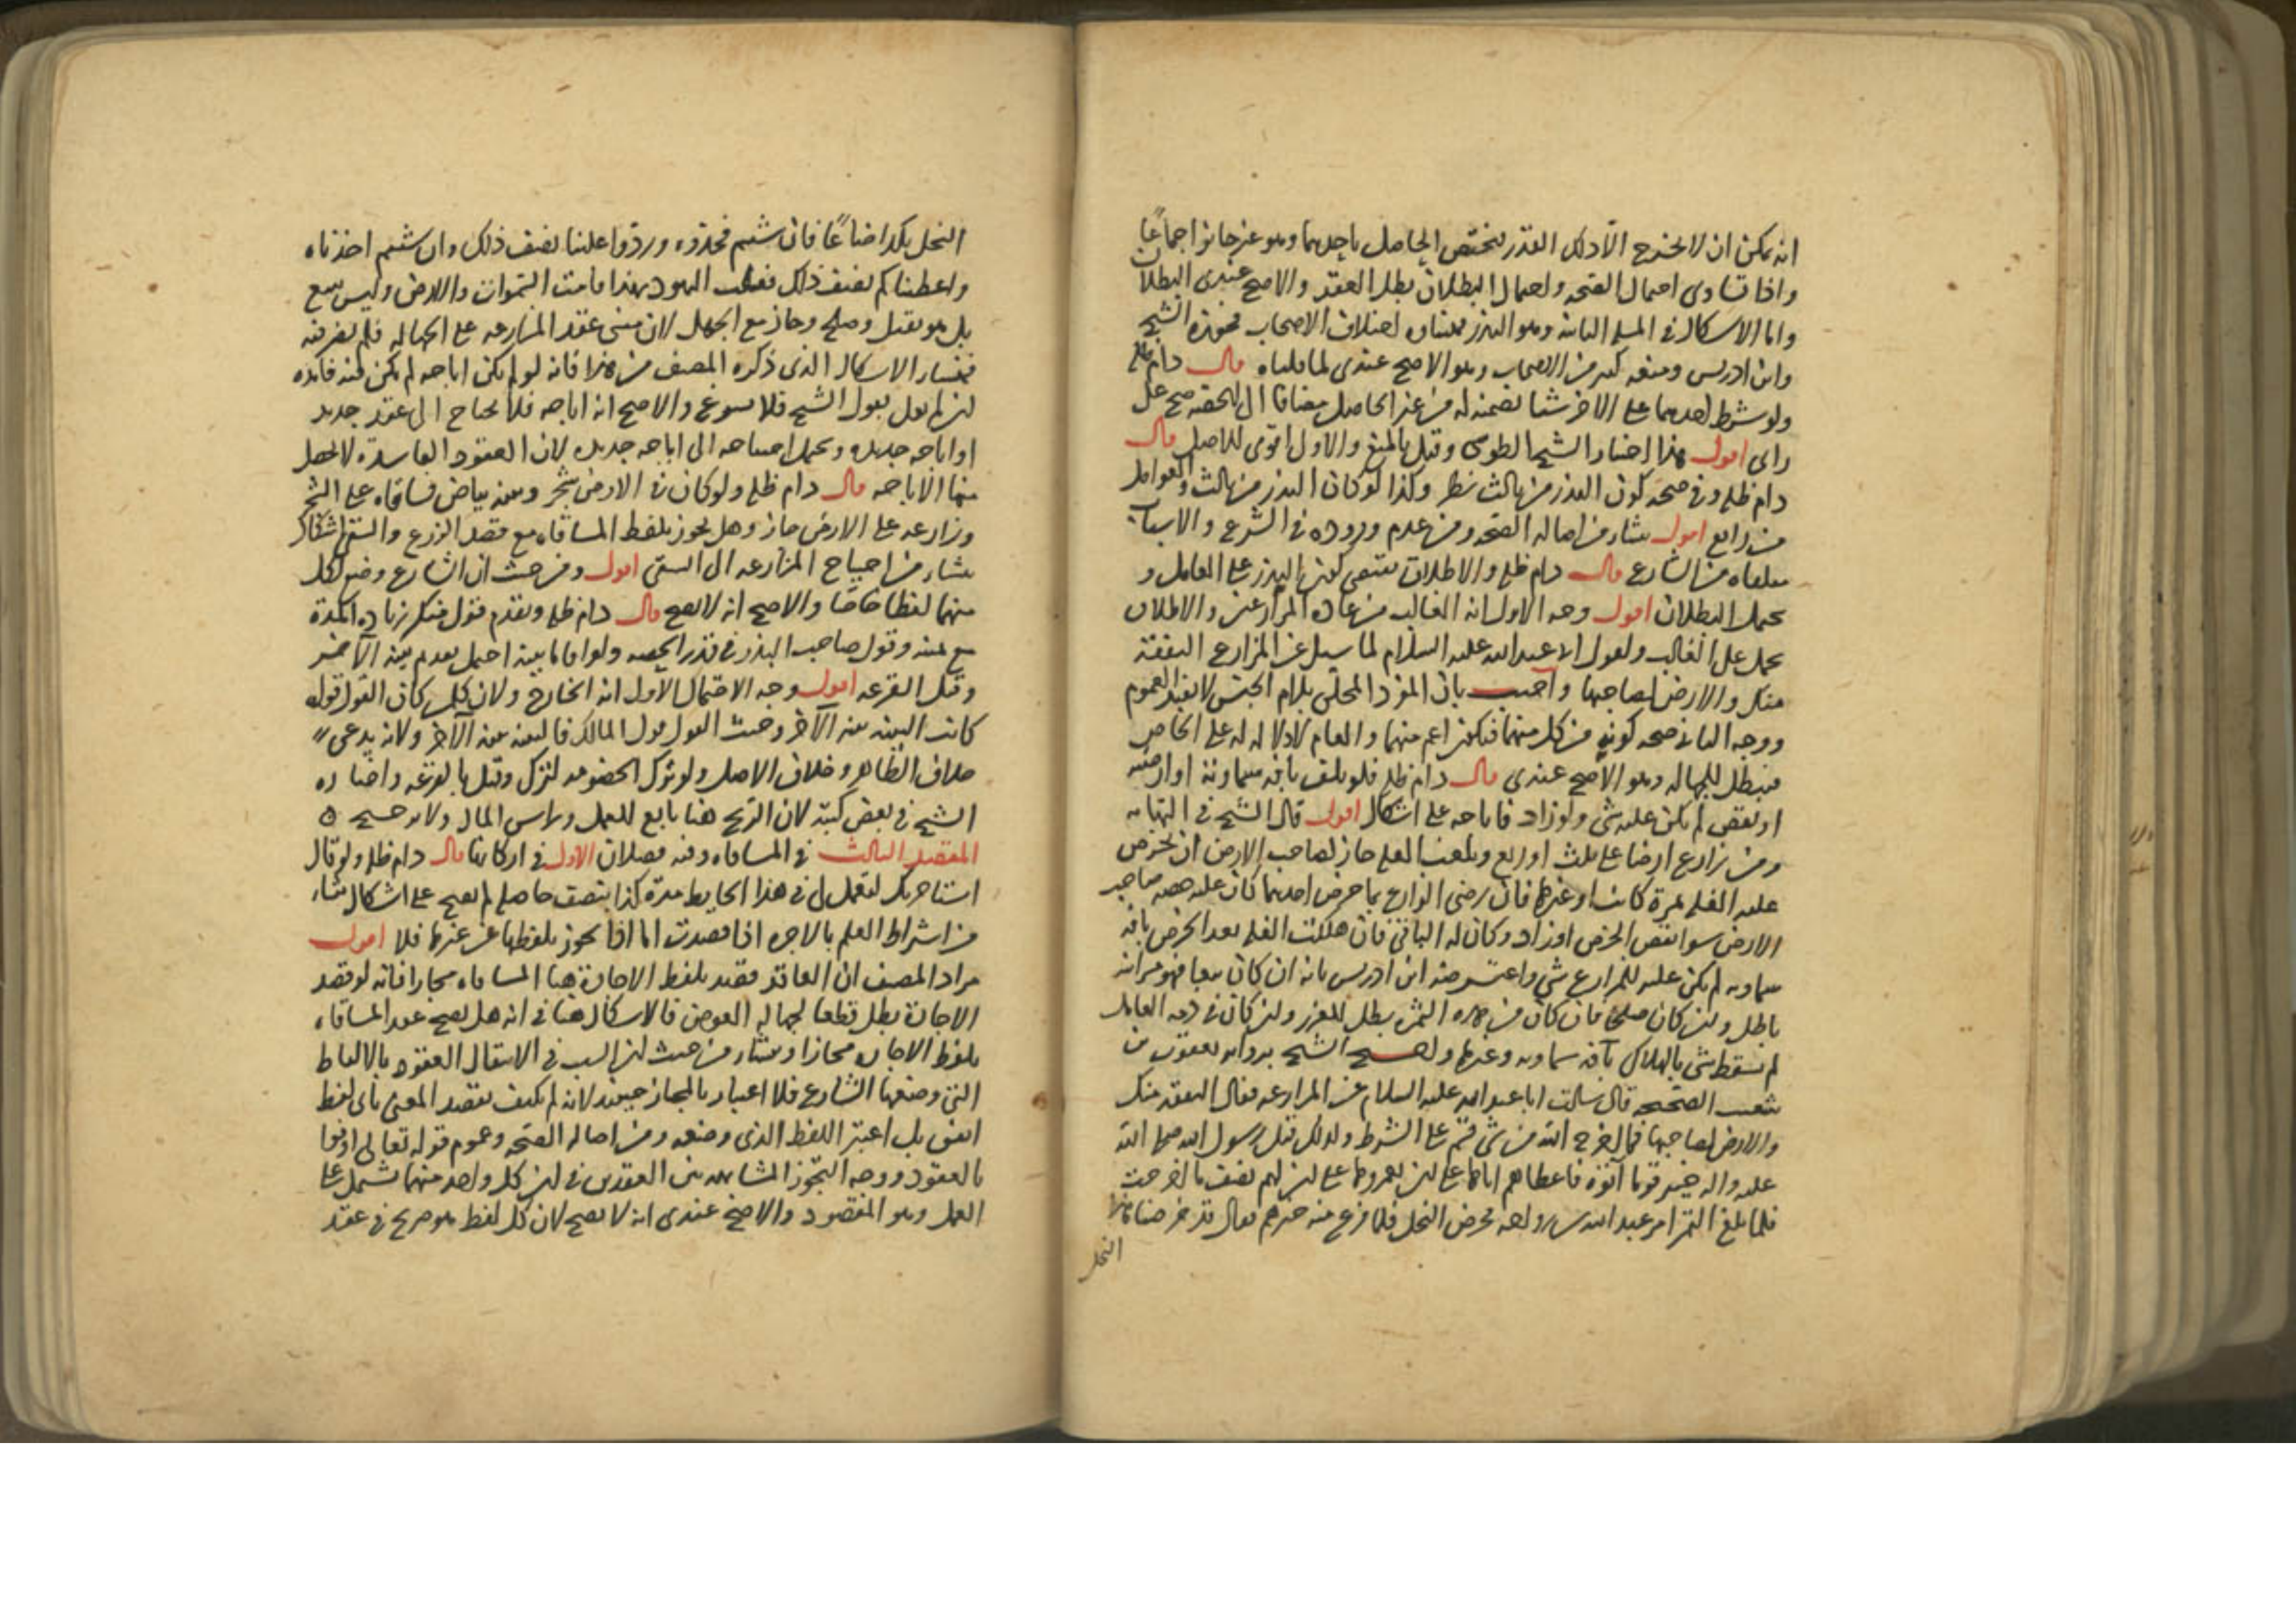 انه يمكن ان لا يخرج الا ذلك القدر فيختص الحاصل باحدهما وهو غير جائز اجماعًا
واذا تساوى احتمال الصحه واحتمال البطلان بطل العقد والاصح عندى البطلان
واما الاشكال فى المسله الثانيه وهو البذر فمنشاوه اختلاف الاصحاب فجوزه الشيخ
وابن ادريس ومنعه كثير من الاصحاب وهو الاصح عندى لما قلناه قال دام ظله
ولو شرط احدهما على الاخر شيا يضمنه له من غير الحاصل مضافا الى الحصه صح على
راى اقول هذا اختيار الشيخ الطوسى وقيل بالمنع والاول اقوى للاصل قال
دام ظله وفى صحه كون البذر من ثالث نظر وكذا لو كان البذر من ثالث والعوامل
من رابع اقول ينشا من اصاله الصحه ومن عدم وروده فى الشرع والاسباب
متلقاه من الشارع قال دام ظله والاطلاق يقتضى كون البذر على العامل و
يحتمل البطلان اقول وجه الاول انه الغالب من عاده المزارعين والاطلاق
يحمل على الغالب ولقول ابى عبد الله عليه السلام لما سيل عن المزارع النفقة
منك والارض لصاحبها واجيب بان المفرد المحلى بلام الجنس لا يفيد العموم
ووجه الثانى صحه كونه من كل منهما فيكون اعم منهما والعام لا دلاله له على الخاص
فيبطل للجهاله وهو الاصح عندى قال دام ظله فلو تلف بآفه سماوية او ارضيه
او نقص لم يكن عليه شى ولو زاد فاباحه على اشكال اقول قال الشيخ فى النهايه
ومن زارع ارضا على ثلث او ربع وبلغت الغله جاز لصاحب الارض ان يخرص
عليه الغله ثمرة كانت او غيرها فان رضى الزارع بما خرص احدهما كان عليه حصه صاحب
الارض سوا نقص الخرص او زاد وكان له الباقى فان هلكت الغله بعد الخرص بآفه
سماويه لم يكن عليه للمزارع شى واعترضه ابن ادريس بانه ان كان بيعا فهو مزابنه
باطل ولئن كان صلحا فان كان من هذه الثمره بطل للغرر ولئن كان فى ذمه العامل
لم يسقط شى بالهلاك بآفه سماويه وغيرها واحتج الشيخ بروايه يعقوب بن
شعيب الصحيحه قال سالت ابا عبد الله عليه السلام عن المزارعه فقال النفقه منك
والارض لصاحبها فما اخرج الله من شى قسم على الشرط وكذلك قبل رسول الله صلى الله
عليه واله خيبر قوما اتوه فاعطاهم اياها على لن يعمروها على لن لهم نصف ما اخرجت
فلما بلغ التمر امر عبد الله بن رواحه فخرص النخل فلما فرغ منه خيرهم فقال قد خرصنا هذا
النخل
النخل بكذا صاعًا فان شيتم فخذوه وردوا علينا نصف ذلك وان شيتم اخذناه
واعطيناكم نصف ذلك فقالت اليهود بهذا قامت السموات والارض وليس ببيع
بل هو تقبل وصلح وجاز مع الجهل لان مبنى عقد المزارعه على الجهاله فلم يضر فيه
فمنشا الاشكال الذى ذكره المصنف من هذا فانه لو لم يكن اباحه لم يكن فيه فايده
لئن لم نقل بقول الشيخ فلا يسوغ والاصح انه اباحه فلا يحتاج الى عقد جديد
او اباحه جديده ويحتمل احتياجه الى اباحه جديده لان العقود الفاسدة لا يحصل
منها الاباحه قال دام ظله ولو كان فى الارض شجر وبينه بياض فساقاه على الشجر
وزارعه على الارض جاز وهل يجوز بلفظ المساقاه مع قصد الزرع والسقى اشكال
ينشا من احتياج المزارعه الى السقى اقول ومن حيث ان الشارع وضع لكل
منهما لفظا خاصا والاصح انه لا يصح قال دام ظله ويقدم قول منكر زياده المدة
مع يمينه وقول صاحب البذر فى قدر الحصه ولو اقاما بينه احتمل تقديم بينه الآخر
وقيل القرعه اقول وجه الاحتمال الاول انه الخارج ولان كل من كان القول قوله
كانت البينه بينه الآخر وحيث القول قول المالك فالبينه بينه الآخر ولانه يدعى
خلاف الظاهر وخلاف الاصل ولو ترك الخصومه لترك وقيل بالقرعه واختاره
الشيخ فى بعض كتبه لان الربح هنا تابع للعمل وراس المال ولا ترجيح ه
المقصد الثالث فى المساقاه وفيه فصلان الاول فى اركانها قال دام ظله ولو قال
استاجرتك لتعمل لى فى هذا الحايط مدة كذا بنصف حاصله لم يصح على اشكال ينشا
من اشتراط العلم بالاجره اذا قصدت اما اذا تجوز بلفظها عن غيرها فلا اقول
مراد المصنف ان العاقد قصد بلفظ الاجارة هنا المساقاه مجازا فانه لو قصد
الاجارة بطل قطعا لجهاله العوض فالاشكال هنا فى انه هل يصح عقد المساقاه
بلفظ الاجاره مجازا ومنشاه من حيث لئن السبب فى الانتقال العقود بالالفاظ
التى وضعها الشارع فلا اعتبار بالمجاز حينيذ لانه لم يكتف بقصد المعنى باى لفظ
اتفق بل اعتبر اللفظ الذى وضعه ومن اصاله الصحه وعموم قوله تعالى اوفوا
بالعقود ووجه التجوز المشابهه بين العقدين فى لئن كل واحد منهما يشتمل على
العمل وهو المقصود والاصح عندى انه لا يصح لان كل لفظ هو صريح فى عقد